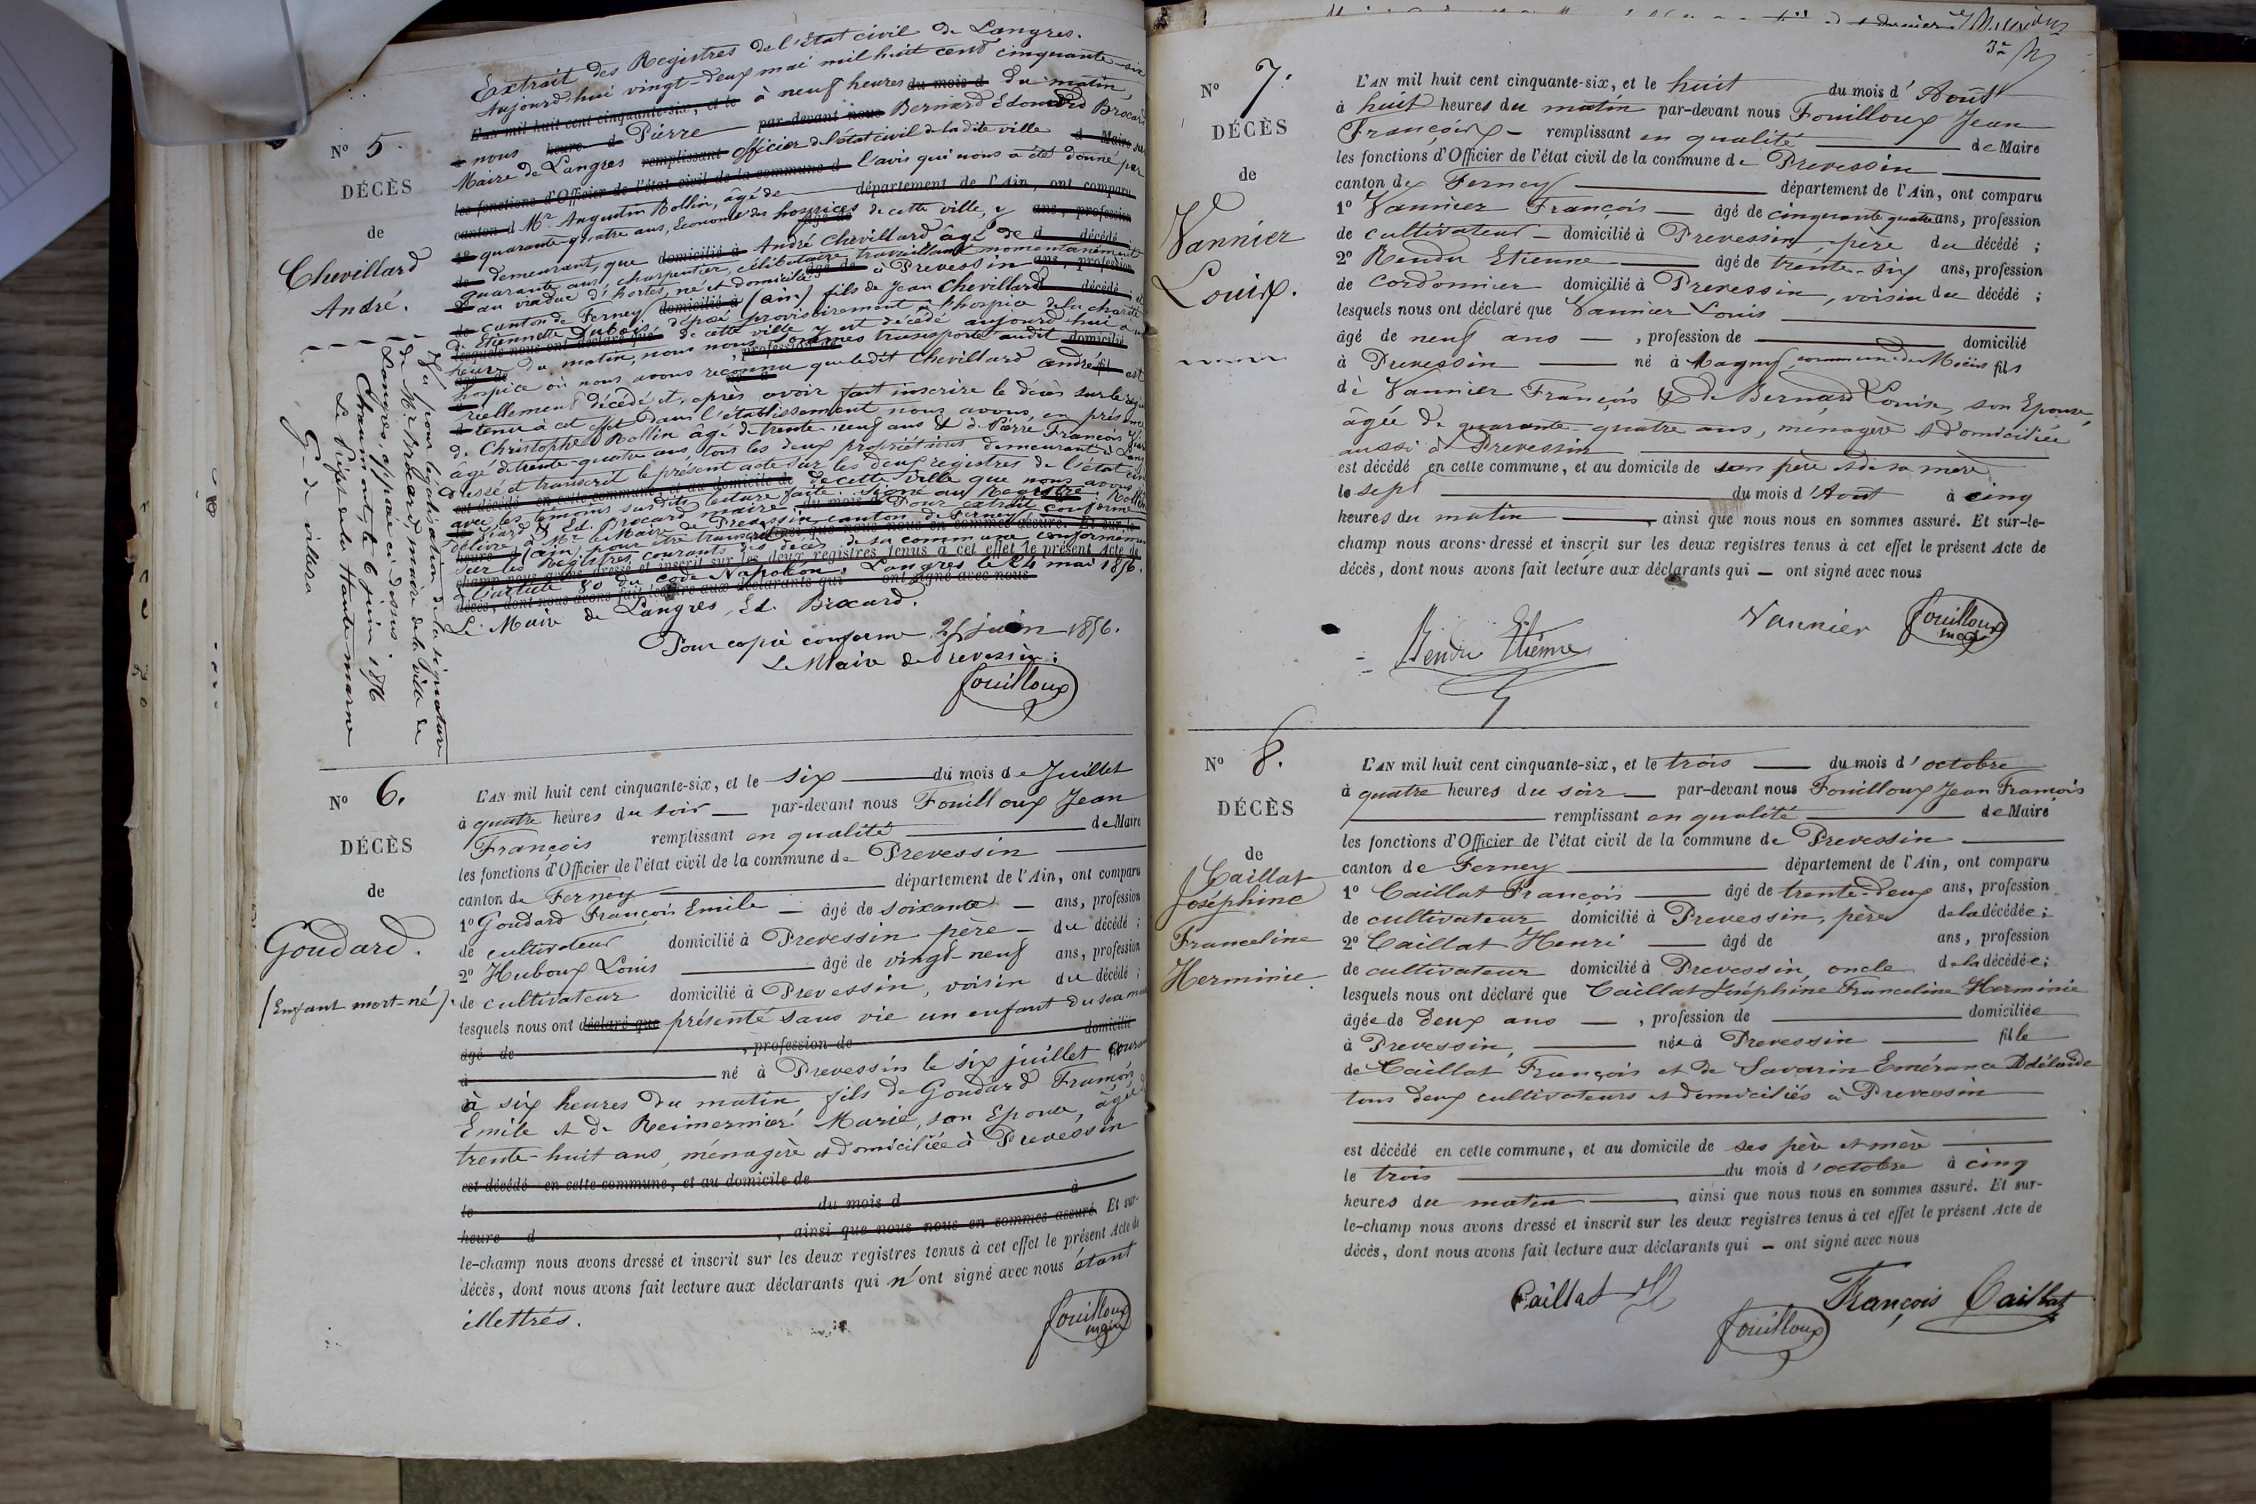 N° 5.
DÉCÈS
de
Chevillard
André.
Extrait des Registres de l'état civil de Langres.
Aujourd'hui vingt-deux mai mil huit cent cinquante-six
L'AN mil huit cent cinquante-six, et le à neuf heures du mois d du matin,
nous heure d Pierre par-devant nous Bernard Edouard Brocard
Maire de Langres remplissant officier de l'état civil de la dite ville d Maire sur
les fonctions d'Officier de l'état civil de la commune d l'avis qui nous a été donné par
canton d Mr. Augustin Rollin, âgé de département de l'Ain, ont comparu
quarante quatre ans, Econome des hospices de cette ville, y ans, profession
demeurant, que domicilié à André Chevillard âgé de d décédé
quarante ans, charpentier, célibataire, travaillant momentanément
au viaduc d'hortes, né et domicilié à Prevessin ans, profession
canton de Ferney domicilié à (ain) fils de Jean Chevillard décédé, et
d'Etiennette Dubois, déposé provisoirement à l'hospice de la charité
lesquels nous ont déclaré que de cette ville y est décédé aujourd'hui à
heure du matin, nous nous sommes transporté audit domicilié
hospice où nous avons reconnu que ledit Chevillard André fil est
réellement décédé et, après avoir fait inscrire le décès sur le
tenu à cet effet dans l'établissement nous avons, en présence
de Christophe Rollin âgé de trente-neuf ans & de Pierre François
âgé de trente-quatre ans, tous les deux propriétaires demeurant à
Dressé et transcrit le présent acte sur les deux registres de l'état
est décédé en cette commune, et au domicile de de cette ville que nous avons
avec les témoins susdits lecture faite. Signé au Registre: Rollin
Ed. Brocard maire. du mois d Pour extrait conforme
délivré à Mr. le Maire de Prevessin canton de Ferney
heure d (ain) pour être transcrit ainsi que nous nous en sommes assuré. Et sur-le-
sur les Registres courants des décès de sa commune, conformément
champ nous avons dressé et inscrit sur les deux registres tenus à cet effet le présent Acte de
à l'article 80 du code Napoléon. Langres le 24 mai 1856.
décès, dont nous avons fait lecture aux déclarants qui ont signé avec nous
Le Maire de Langres, Ed. Brocard.
Pour copie conforme 21 juin 1856.
Le Maire de Prevessin:
fouilloux
Vu pour légalisation de la signature
de Mr. Brocard, maire de la Ville de
Langres, apposée ci-dessus
Chaumont, le 6 juin 1856
Le Préfet de la Haute-marne
N° 6.
DÉCÈS
de
Goudard.
(Enfant mort-né).
L'AN mil huit cent cinquante-six, et le six du mois de Juillet
à quatre heures du soir par-devant nous Fouilloux Jean
François remplissant en qualité de Maire
les fonctions d'Officier de l'état civil de la commune de Prevessin
canton de Ferney département de l'Ain, ont comparu
1° Goudard François Emile âgé de soixante ans, profession
de cultivateur domicilié à Prevessin père du décédé ;
2° Huboux Louis âgé de vingt-neuf ans, profession
de cultivateur domicilié à Prevessin, voisin du décédé ;
lesquels nous ont déclaré que présenté sans vie un enfant du sexe
âgé de , profession de domicilié
à né à Prevessin le six juillet
à six heures du matin fils de Goudard François
Emile et de Reimermier Marie, son Epouse, âgée
trente-huit ans, ménagère et domiciliée à Prevessin
est décédé en cette commune, et au domicile de
le du mois d à
heure d , ainsi que nous nous en sommes assuré. Et sur-
le-champ nous avons dressé et inscrit sur les deux registres tenus à cet effet le présent Acte de
décès, dont nous avons fait lecture aux déclarants qui n'ont signé avec nous étant
illettrés.
fouilloux
maire
3e
N° 7.
DÉCÈS
de
Vannier
Louis.
L'AN mil huit cent cinquante-six, et le huit du mois d'Août
à huit heures du matin par-devant nous Fouilloux Jean
François remplissant en qualité de Maire
les fonctions d'Officier de l'état civil de la commune de Prevessin
canton de Ferney département de l'Ain, ont comparu
1° Vannier François âgé de cinquante quatre ans, profession
de cultivateur domicilié à Prevessin, père du décédé ;
2° Rendu Etienne âgé de trente-six ans, profession
de cordonnier domicilié à Prevessin, voisin du décédé ;
lesquels nous ont déclaré que Vannier Louis
âgé de neuf ans , profession de domicilié
à Prevessin né à Magny, commune de Moëns fils
de Vannier François & de Bernard Louise, son Epouse,
âgée de quarante-quatre ans, ménagère & domiciliée
aussi à Prevessin
est décédé en cette commune, et au domicile de son père et de sa mère
le sept du mois d'Août à cinq
heures du matin , ainsi que nous nous en sommes assuré. Et sur-le-
champ nous avons dressé et inscrit sur les deux registres tenus à cet effet le présent Acte de
décès, dont nous avons fait lecture aux déclarants qui ont signé avec nous
Rendu Etienne
Vannier
fouilloux
N° 8.
DÉCÈS
de
Caillat
Joséphine
Franceline
Herminie.
L'AN mil huit cent cinquante-six, et le trois du mois d'octobre
à quatre heures du soir par-devant nous Fouilloux Jean François
remplissant en qualité de Maire
les fonctions d'Officier de l'état civil de la commune de Prevessin
canton de Ferney département de l'Ain, ont comparu
1° Caillat François âgé de trente-deux ans, profession
de cultivateur domicilié à Prevessin, père de la décédée ;
2° Caillat Henri âgé de ans, profession
de cultivateur domicilié à Prevessin, oncle de la décédée ;
lesquels nous ont déclaré que Caillat Joséphine Franceline Herminie
âgée de deux ans , profession de domiciliée
à Prevessin, née à Prevessin fille
de Caillat François et de Savarin Emérance Adélaïde
tous deux cultivateurs et domiciliés à Prevessin
est décédé en cette commune, et au domicile de ses père et mère
le trois du mois d'octobre à cinq
heures du matin , ainsi que nous nous en sommes assuré. Et sur-
le-champ nous avons dressé et inscrit sur les deux registres tenus à cet effet le présent Acte de
décès, dont nous avons fait lecture aux déclarants qui ont signé avec nous
Caillat H
François Caillat
fouilloux